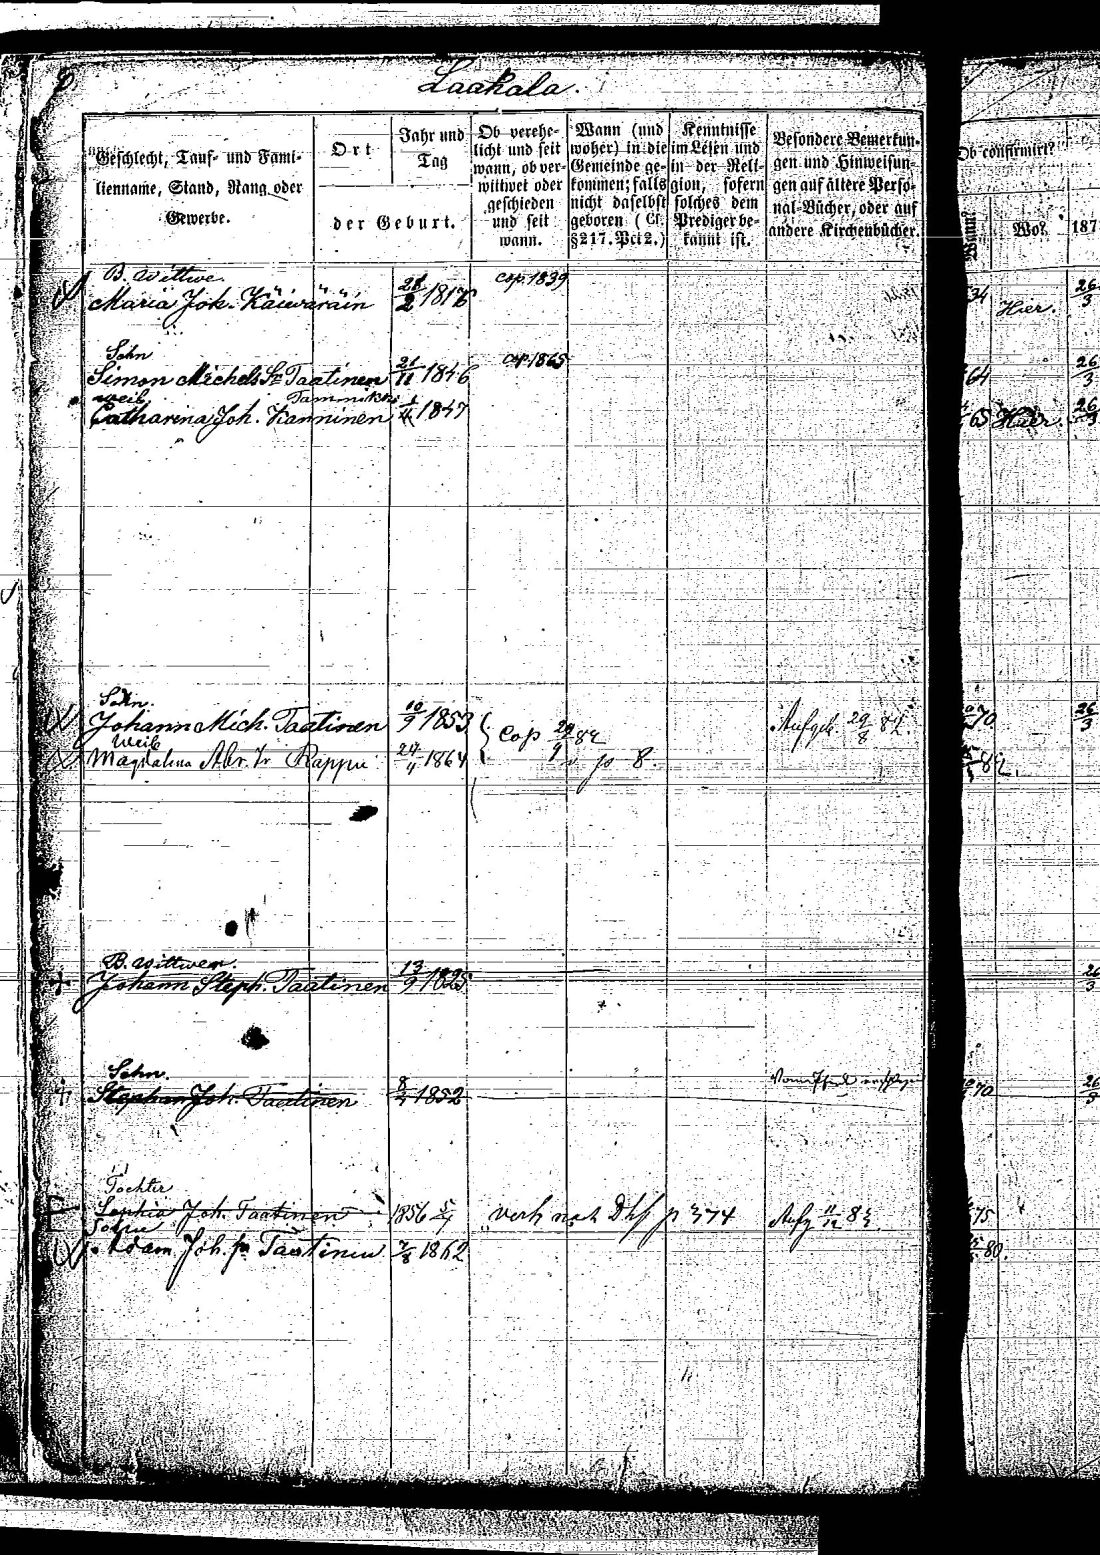 Laakala.
Geschlecht, Tauf- und Fami-
lienname, Stand, Rang oder
Gewerbe.
Ort
Jahr und
Tag
der Geburt.
Ob verehe-
licht und seit
wann, ob ver-
wittwet oder
geschieden
und seit
wann.
Wann (und
woher) in die
Gemeinde ge-
kommen; falls
nicht daselbst
geboren (Cf.
§217. Pct 2.)
Kenntnisse
im Lesen und
in der Reli-
gion, sofern
solches dem
Prediger be-
kannt ist.
Besondere Bemerkun-
gen und Hinweisun-
gen auf ältere Perso-
nal-Bücher, oder auf
andere Kirchenbücher.
Ob confirmirt?
Wann?
Wo?
187
B. Wittwe. cop. 1839
Maria Joh. Käiväräin 1816 34 Hier. 26/3
Sohn cop. 1865
Simon Michels Sn Taatinen 21/11 1846 64 26/3
Weib Tammikko
Catharina Joh. Kanninen 1847 65 Hier. 26/3
Sohn.
Johann Mich. Taatinen 10/9 1853 Cop 29/9 82 Aufgeb. 29/8 82. 70 26/3
Weib
Magdalena Abr. Tr Rappu 24/4 1864 p 8. 82.
B. Wittwer.
Johann Steph. Taatinen 13/9 1825 26/3
Sohn.
Stephan Joh. Taatinen 1852 70 26/3
Tochter
Sophia Joh. Taatinen 1856 verh nach p 374 Aufg 11/12 83 75
Sohn
Adam Joh. Taatinen 7/8 1862 80.